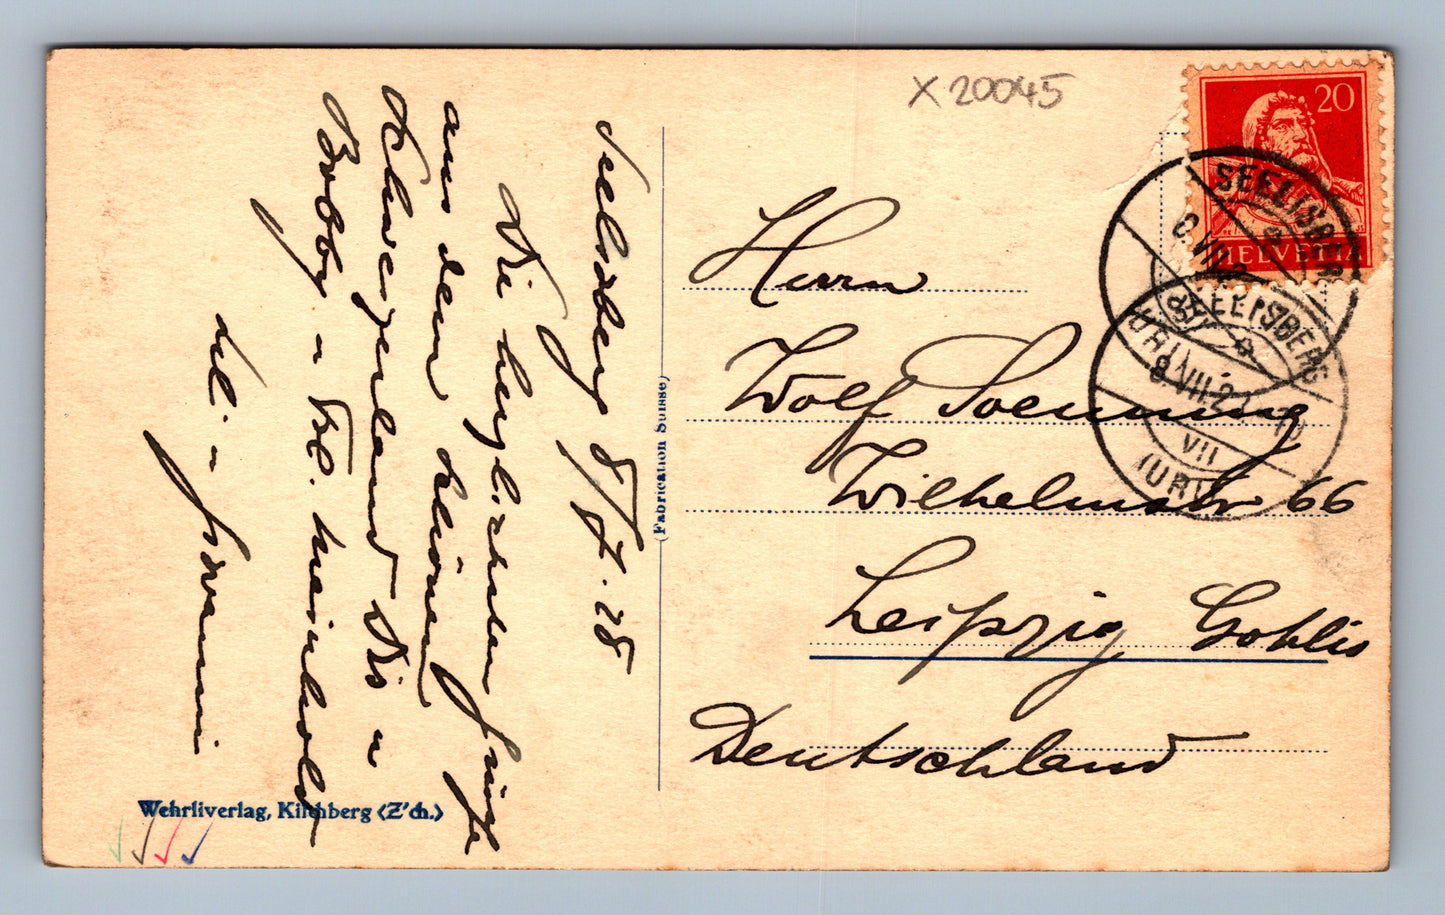 X 20045
20
HELVETIA
SEELISBERG
(URI)
SEELISBERG
8.VII.2
VII
(URI)
Seelisberg 8/7.28
Die herzlichsten Grüße
aus dem schönen
Schweizerland Dir u
Bobby u Fe. Meinhold
(Fabrication Suisse)
Herrn
Wolf
Wilhelmstr 66
Leipzig Gohlis
Deutschland
Wehrliverlag, Kilchberg (Z'ch.)